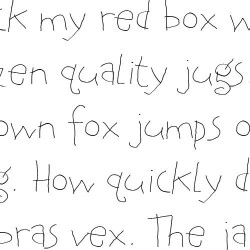 ck my red box w
zen quality jugs
own fox jumps o
g. How quickly d
bras vex. The ja